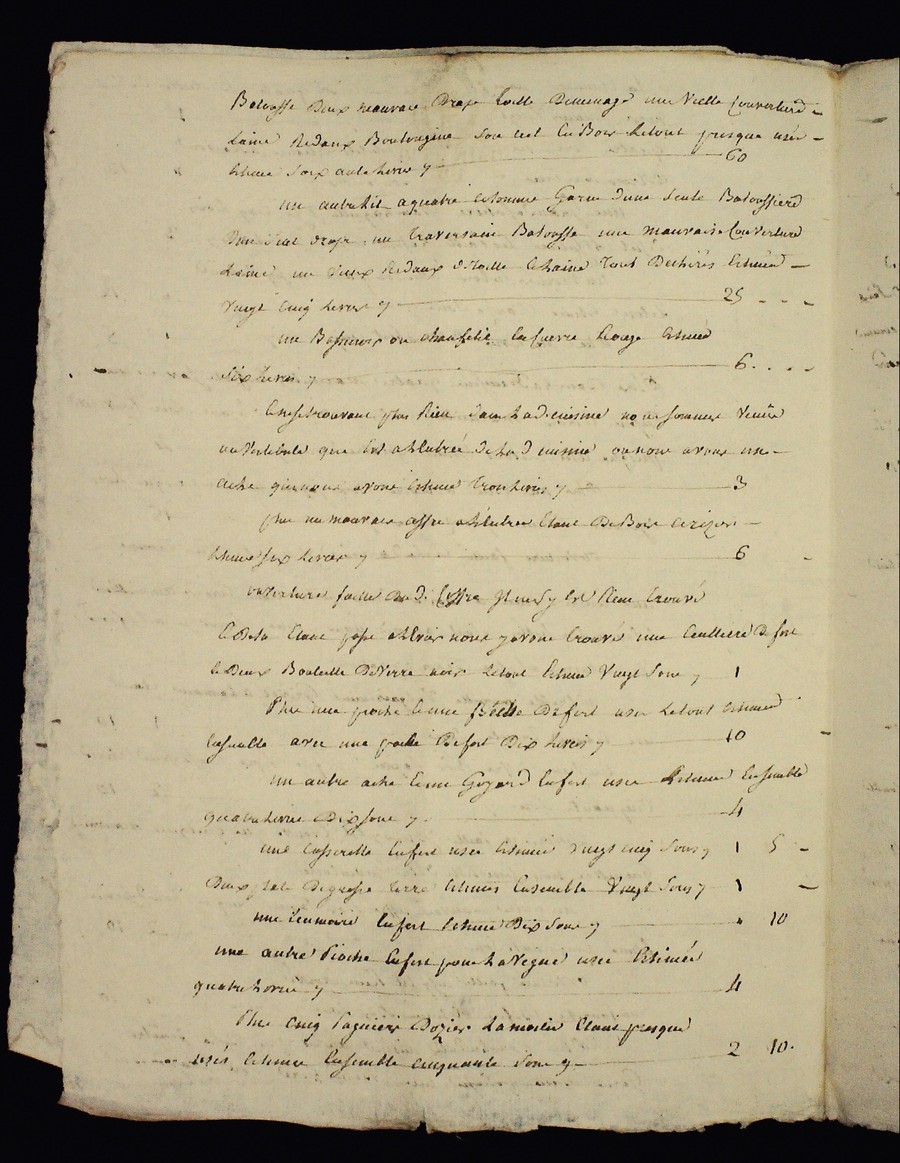 Balouffe Deux mauvais Drap toille Demenage une Vielle Couverture
Laine Redaux Boulongine Son ciel En Bois Letout presque usée
Estimé Soixante Livres y 60
un autre Lit a quatre Colonne Garni d'une Seule Balouffiere
D'un Seul drap un traversain Balouffe une mauvaise Couverture
Laine un Vieux Redaux de toille Et Laine Tout Dechirés Estimé
Vingt Cinq Livres y 25
une Bassinoir ou En Cuivre Rouge Estimé
Six Livres y 6
Et ne se trouvant plus Rien dans Lad cuisine nous sommes Venue
au Vestibule que Est a L'entrée de Lad cuisine ou nous avons une
ache que nous avons Estimé trois Livres y 3
plus un mauvais coffre a L'entrée Etant De Bois Cerizier
Estimé six Livres y 6
ouverture faitte Dud. Coffre Il ne s'y Est Rien trouvé
Et De la Etant passé nous y avons trouvé une Cuilliere De fert
Et Deux Bouteille De Verre noir Letout Estimé Vingt Sous y 1
Plus une pioche Et une De fert usée Letout Estimé
Ensemble avec une De fert Dix Livres y 10
un autre ache Et une Goyard En fert usée Estimé Ensemble
quatre Livres Dix Sous y 4
une Casserolle En fert usée Estimée Vingt cinq Sous y 1 5
Deux De grosse terre Estimés Ensemble Vingt Sous y 1
une Ecumoire En fert Estimé Dix Sous y 10
une autre Pioche En fert pour La Vigne usée Estimée
quatre Livres y 4
Plus Cinq Paguiers D'ozier La moitié Etant presque
usés Estimés Ensemble Cinquante Sous y 2 10